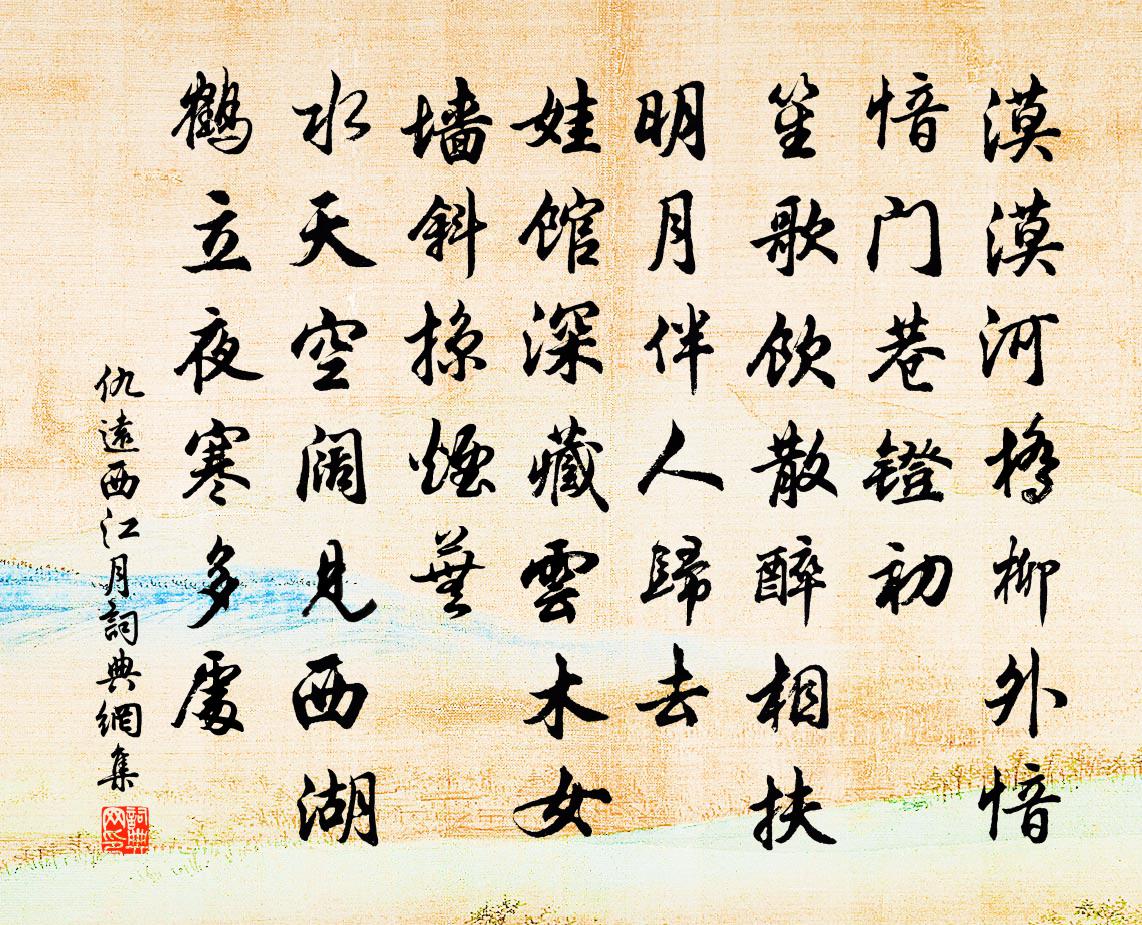 漠漠河橋柳外愔
愔门巷镫初
笙歌饮散醉相扶
明月伴人歸去
娃馆深藏雲木女
墙斜掠煙蕪
水天空阔见西湖
鹤立夜寒多處
仇遠西江月詞典網集
詞典网印